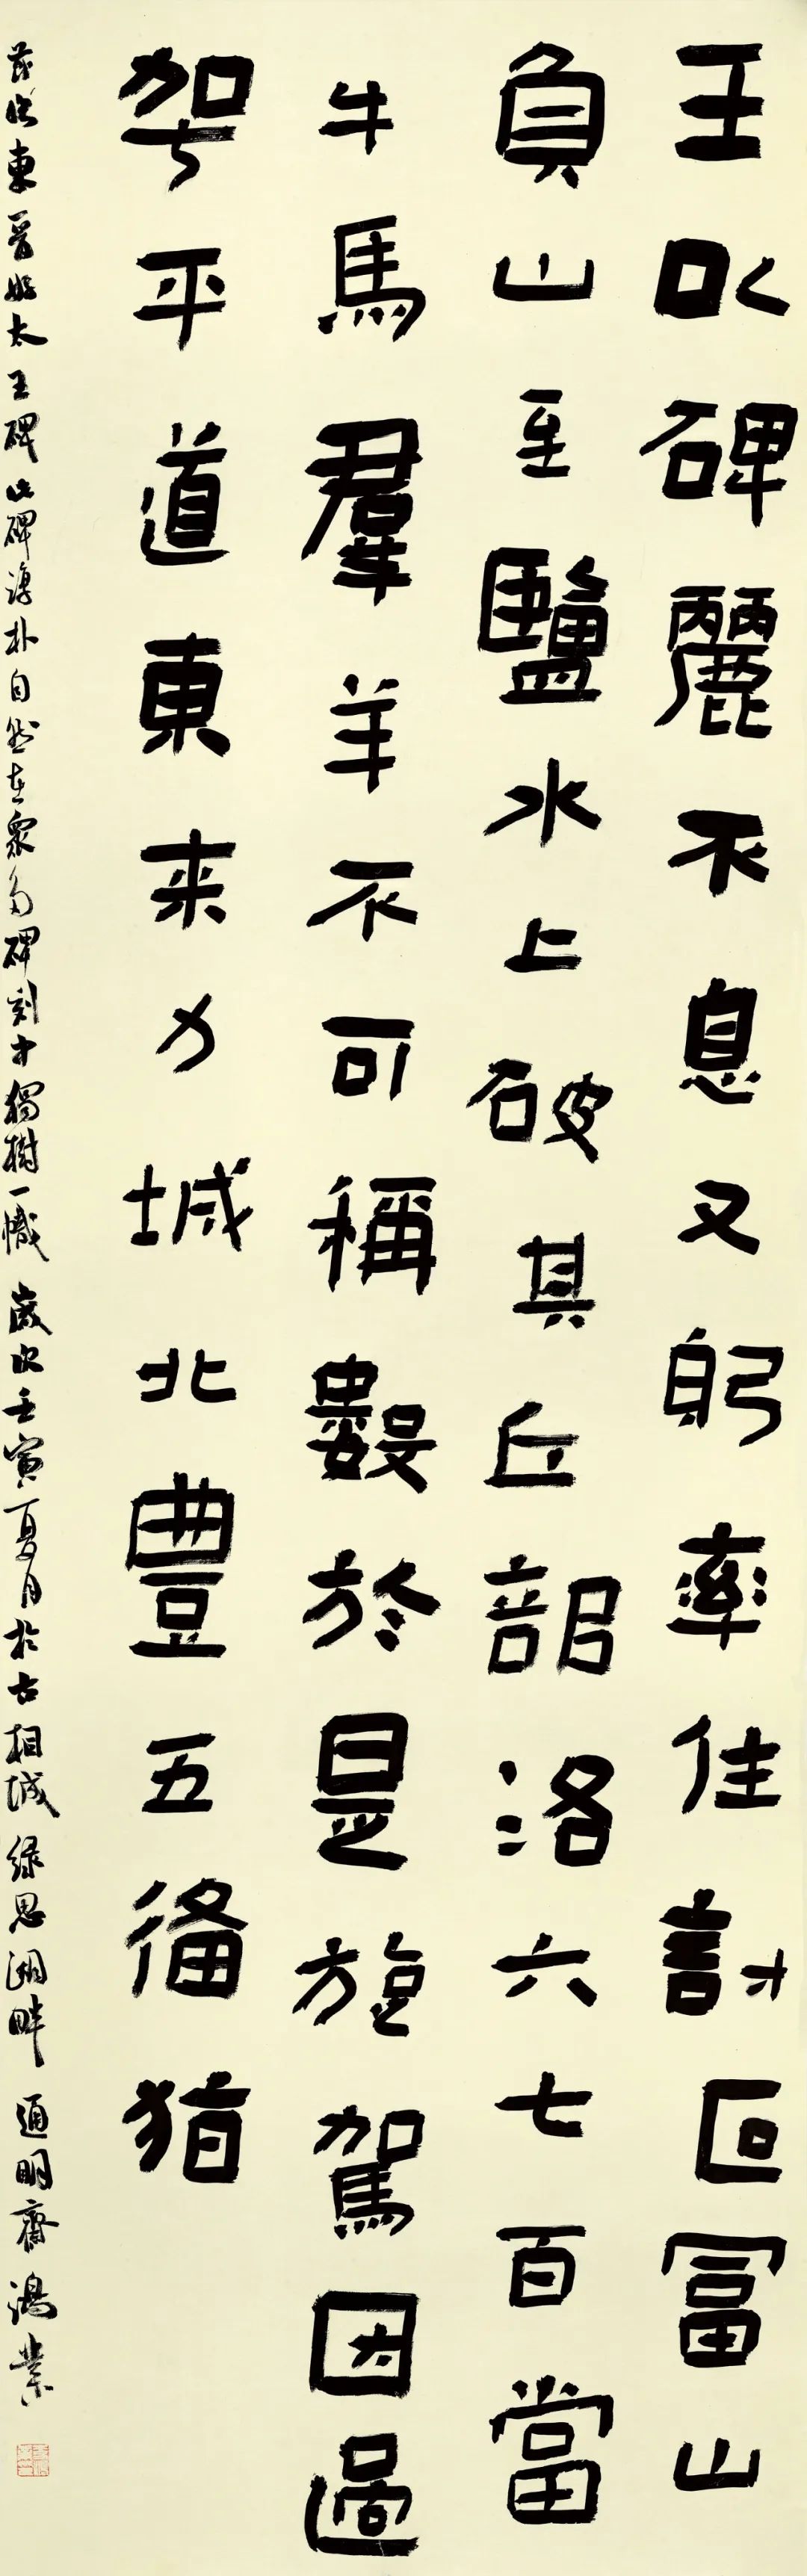 王以碑麗不息又躬率住討叵富山
負山至鹽水上破其丘部洛六七百當
牛馬羣羊不可稱數於是旋駕因過
㗎平道東来力城北豊五備猶
東晉好太王碑此碑淳朴自然在眾多碑刻中獨樹一幟歲次壬寅夏月於古相城綠思湖畔通明齋鴻業